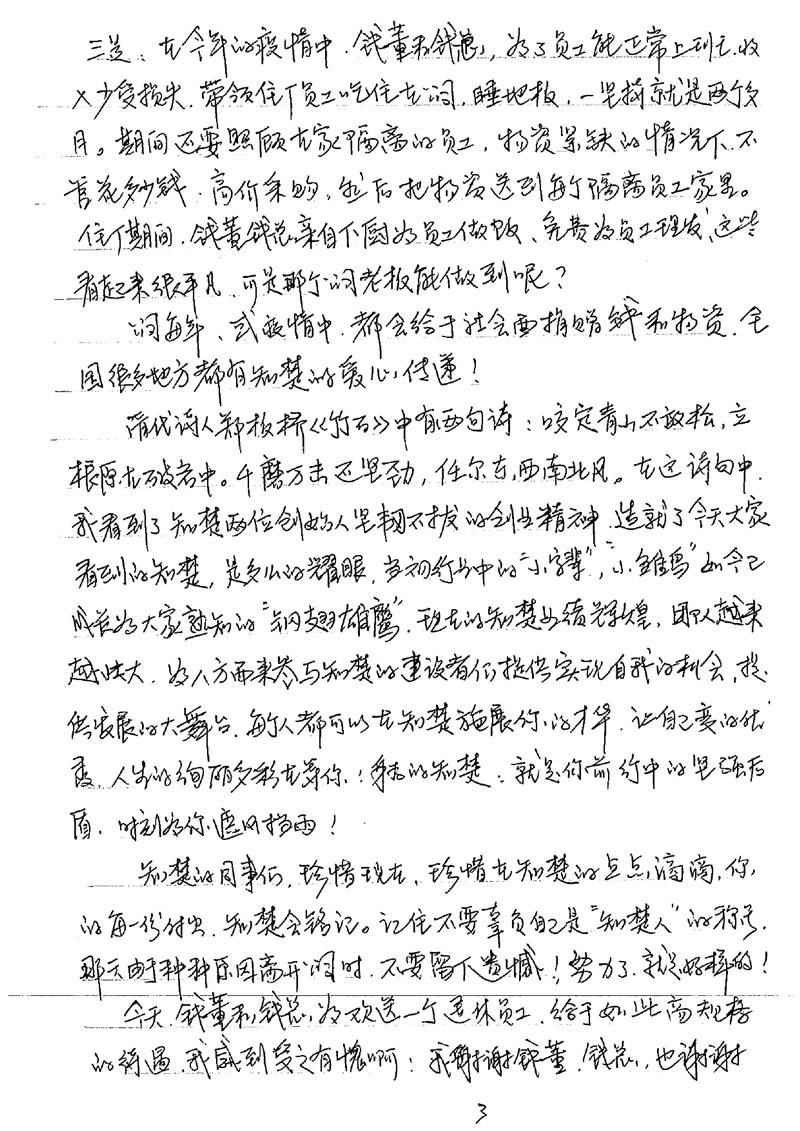 三是：在今年的疫情中，钱董和钱总，为了员工能正常上班无收
入少受损失，带领住厂员工吃住在公司，睡地板，一坚持就是两个多
月。期间还要照顾在家隔离的员工，物资紧缺的情况下，不
管花多少钱，高价采购，然后把物资送到每个隔离员工家里。
住厂期间，钱董钱总亲自下厨为员工做饭、免费为员工理发，这些
看起来很平凡，可是那个公司老板能做到呢？
公司每年、或疫情中，都会给于社会面捐赠钱和物资，全
国很多地方都有知楚的爱心传递！
隋代诗人郑板桥《竹石》中有两句诗：咬定青山不放松，立
根原在破岩中。千磨万击还坚劲，任尔东西南北风。在这诗句中，
我看到了知楚两位创始人坚韧不拔的创业精神，造就了今天大家
看到的知楚，是多么的耀眼，当初行业中的“小字辈”，“小雏鸟”如今已
成长为大家熟知的“钢翅雄鹰”，现在的知楚业绩辉煌，团队越来
越壮大，为八方而来参与知楚的建设者们提供实现自我的机会，提
供发展的大舞台，每个人都可以在知楚施展你的才华，让自己变的优
秀，人生的绚丽多彩在等你！身后的知楚，就是你前行中的坚强后
盾，时刻为你遮风挡雨！
知楚的同事们，珍惜现在，珍惜在知楚的点点滴滴，你
的每一份付出，知楚会铭记。记住不要辜负自己是“知楚人”的称号，
那天由于种种原因离开公司时，不要留下遗憾！努力了，就是好样的！
今天，钱董和钱总，为欢送一个退休员工，给于如此高规格
的待遇，我感到受之有愧啊；我谢谢钱董、钱总，也谢谢
3